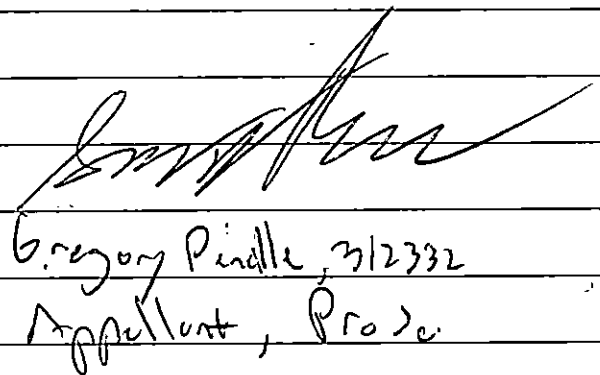 Gregory Pindle, 312332
Appellant, Pro Se.